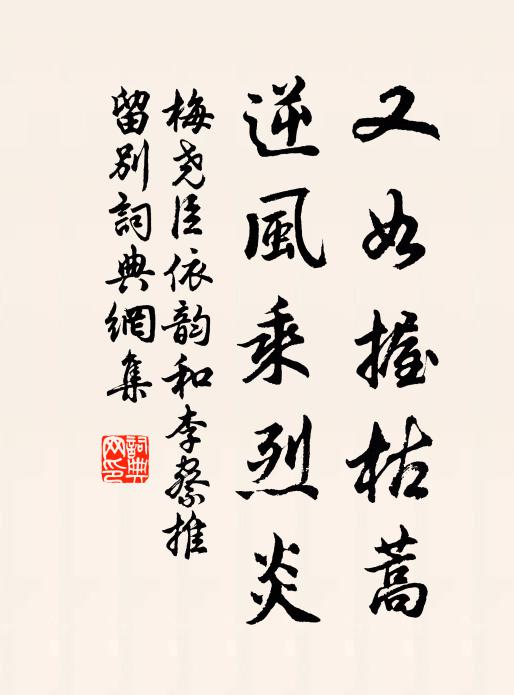 又如握枯蒿
逆風乘烈炎
梅堯臣依韵和李察推
留別詞典網集
詞典
网印